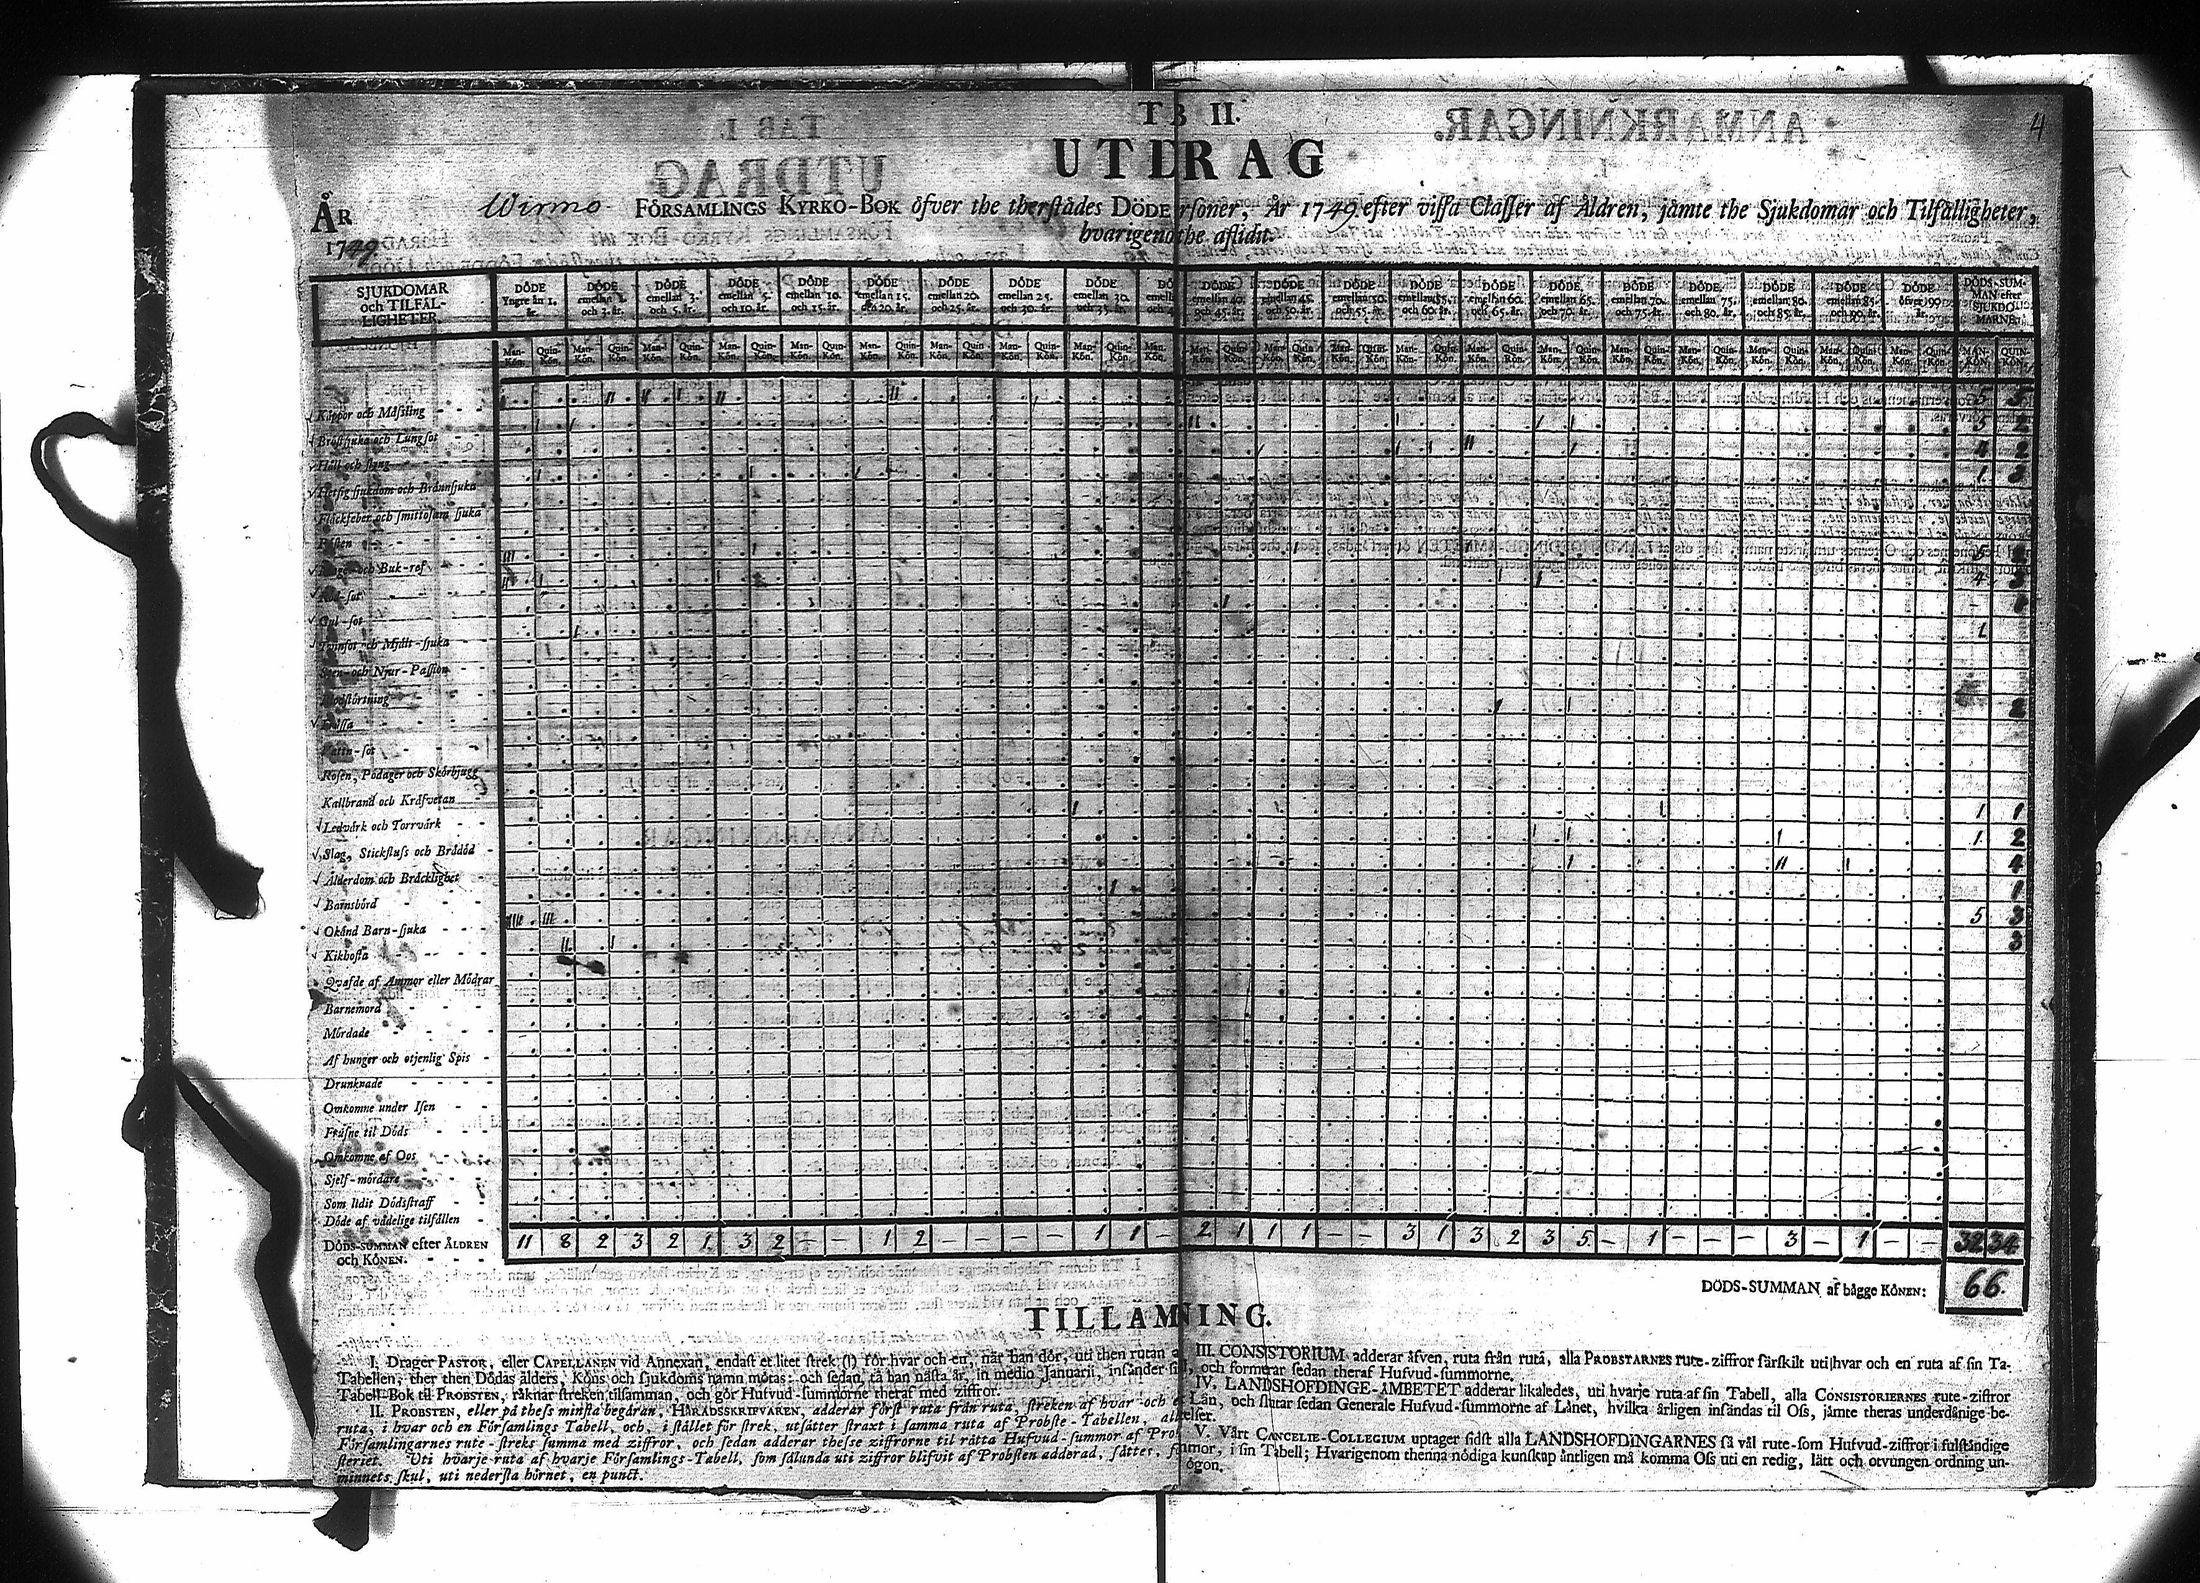 4
TAB II.
UTDRAG
ÅR
1749.
Wirmo FÖRSAMLINGS KYRKO-BOK öfver the therstädes DÖDE Personer, År 1749. efter vissa Classer af Åldren, jämte the Sjukdomar och Tilfälligheter,
hvarigenom the aflidit.
SJUKDOMAR
och TILFÄL-
LIGHETER.
DÖDE Yngre än 1. år.
DÖDE emellan 1. och 3. år.
DÖDE emellan 3. och 5. år.
DÖDE emellan 5. och 10. år.
DÖDE emellan 10. och 15. år.
DÖDE emellan 15. och 20. år.
DÖDE emellan 20. och 25. år.
DÖDE emellan 25. och 30. år.
DÖDE emellan 30. och 35. år.
DÖDE emellan 40. och 45. år.
DÖDE emellan 45. och 50. år.
DÖDE emellan 50. och 55. år.
DÖDE emellan 55. och 60. år.
DÖDE emellan 60. och 65. år.
DÖDE emellan 65. och 70. år.
DÖDE emellan 70. och 75. år.
DÖDE emellan 75. och 80. år.
DÖDE emellan 80. och 85. år.
DÖDE emellan 85. och 90. år.
DÖDE öfver 90. år.
DÖDS-SUM-
MAN efter
SJUKDO-
MARNE.
Man-Kön. Quin-Kön.
Koppor och Mässling 5 5
Bröstsjuka och Lungsot 5 2
Håll och styng 4 2
Hetsig sjukdom och Brännsjuka 1 3
Fläckfeber och smittosam sjuka
Pesten
Buk-ref 5
4 3
Gul-sot 1
Tvinsot och Mjält-sjuka 1
Sten- och Njur-Passion
Blodstörtning
2
Vattu-sot
Rosen, Podager och Skörbjugg
Kallbrand och Kräfvetan
Ledvärk och Torrvärk 1 1
Slag, Stickfluss och Brådöd 1 2
Ålderdom och Bräcklighet 4
Barnsbörd 1
Okänd Barn-sjuka 5 3
Kikhosta 3
Qvafde af Ammor eller Mödrar
Barnemord
Mördade
Af hunger och otjenlig Spis
Drunknade
Omkomne under Isen
Frusne til Döds
Omkomne af Oos
Sjelf-mördare
Som lidit Dödsstraff
Döde af vådelige tilfällen
DÖDS-SUMMAN efter ÅLDREN
och KÖNEN. 11 8 2 3 2 1 3 2 – – 1 2 – – – – 1 1 – 2 1 1 1 – – 3 1 3 2 3 5 – 1 – – – 3 – 1 – – 32 34
DÖDS-SUMMAN af bägge KÖNEN: 66.
TILLÄMNING.
I. Drager PASTOR, eller CAPELLANEN vid Annexan, endast et litet strek (I) för hvar och en, när han dör, uti then rutan af
Tabellen, ther then Dödas ålders, Köns och sjukdoms namn mötas: och sedan, tå han nästa år, in medio Januarii, insänder sin
Tabell-Bok til PROBSTEN, räknar streken tilsamman, och gör Hufvud-summorne theraf med ziffror.
II. PROBSTEN, eller på thess minsta begäran, HÄRADSSKRIFVAREN, adderar först ruta från ruta, streken af hvar och en
ruta, i hvar och en Församlings Tabell, och, i stället för strek, utsätter straxt i samma ruta af Probste-Tabellen, alla
Församlingarnes rute-streks summa med ziffror, och sedan adderar thesse ziffrorne til rätta Hufvud-summor af Prob-
steriet. Uti hvarje ruta af hvarje Församlings-Tabell, som sålunda uti ziffror blifvit af Probsten adderad, sätter, för
minnets skul, uti nedersta hörnet, en punct.
III. CONSISTORIUM adderar äfven, ruta från ruta, alla PROBSTARNES rute-ziffror särskilt uti hvar och en ruta af sin Ta-
bell, och formerar sedan theraf Hufvud-summorne.
IV. LANDSHOFDINGE-ÄMBETET adderar likaledes, uti hvarje ruta af sin Tabell, alla CONSISTORIERNES rute-ziffror
Län, och slutar sedan Generale Hufvud-summorne af Länet, hvilka årligen insändas til Oss, jämte theras underdånige be-
rättelser.
V. Vårt CANCELIE-COLLEGIUM uptager sidst alla LANDSHOFDINGARNES så väl rute-som Hufvud-ziffror i fulständige
summor, i sin Tabell; Hvarigenom thenna nödiga kunskap äntligen må komma Oss uti en redig, lätt och otvungen ordning un-
der ögon.